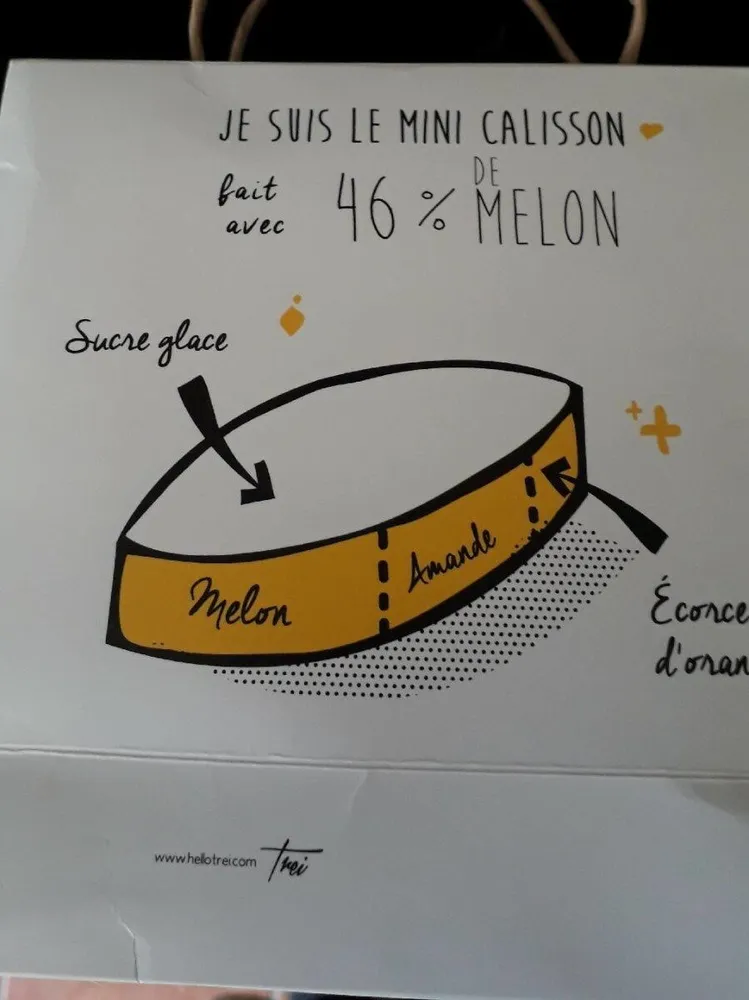 JE SUIS LE MINI CALISSON
fait avec 46 % DE MELON
Sucre glace
Melon
Amande
Écorce
d'oran
www.hellotrei.com Trei